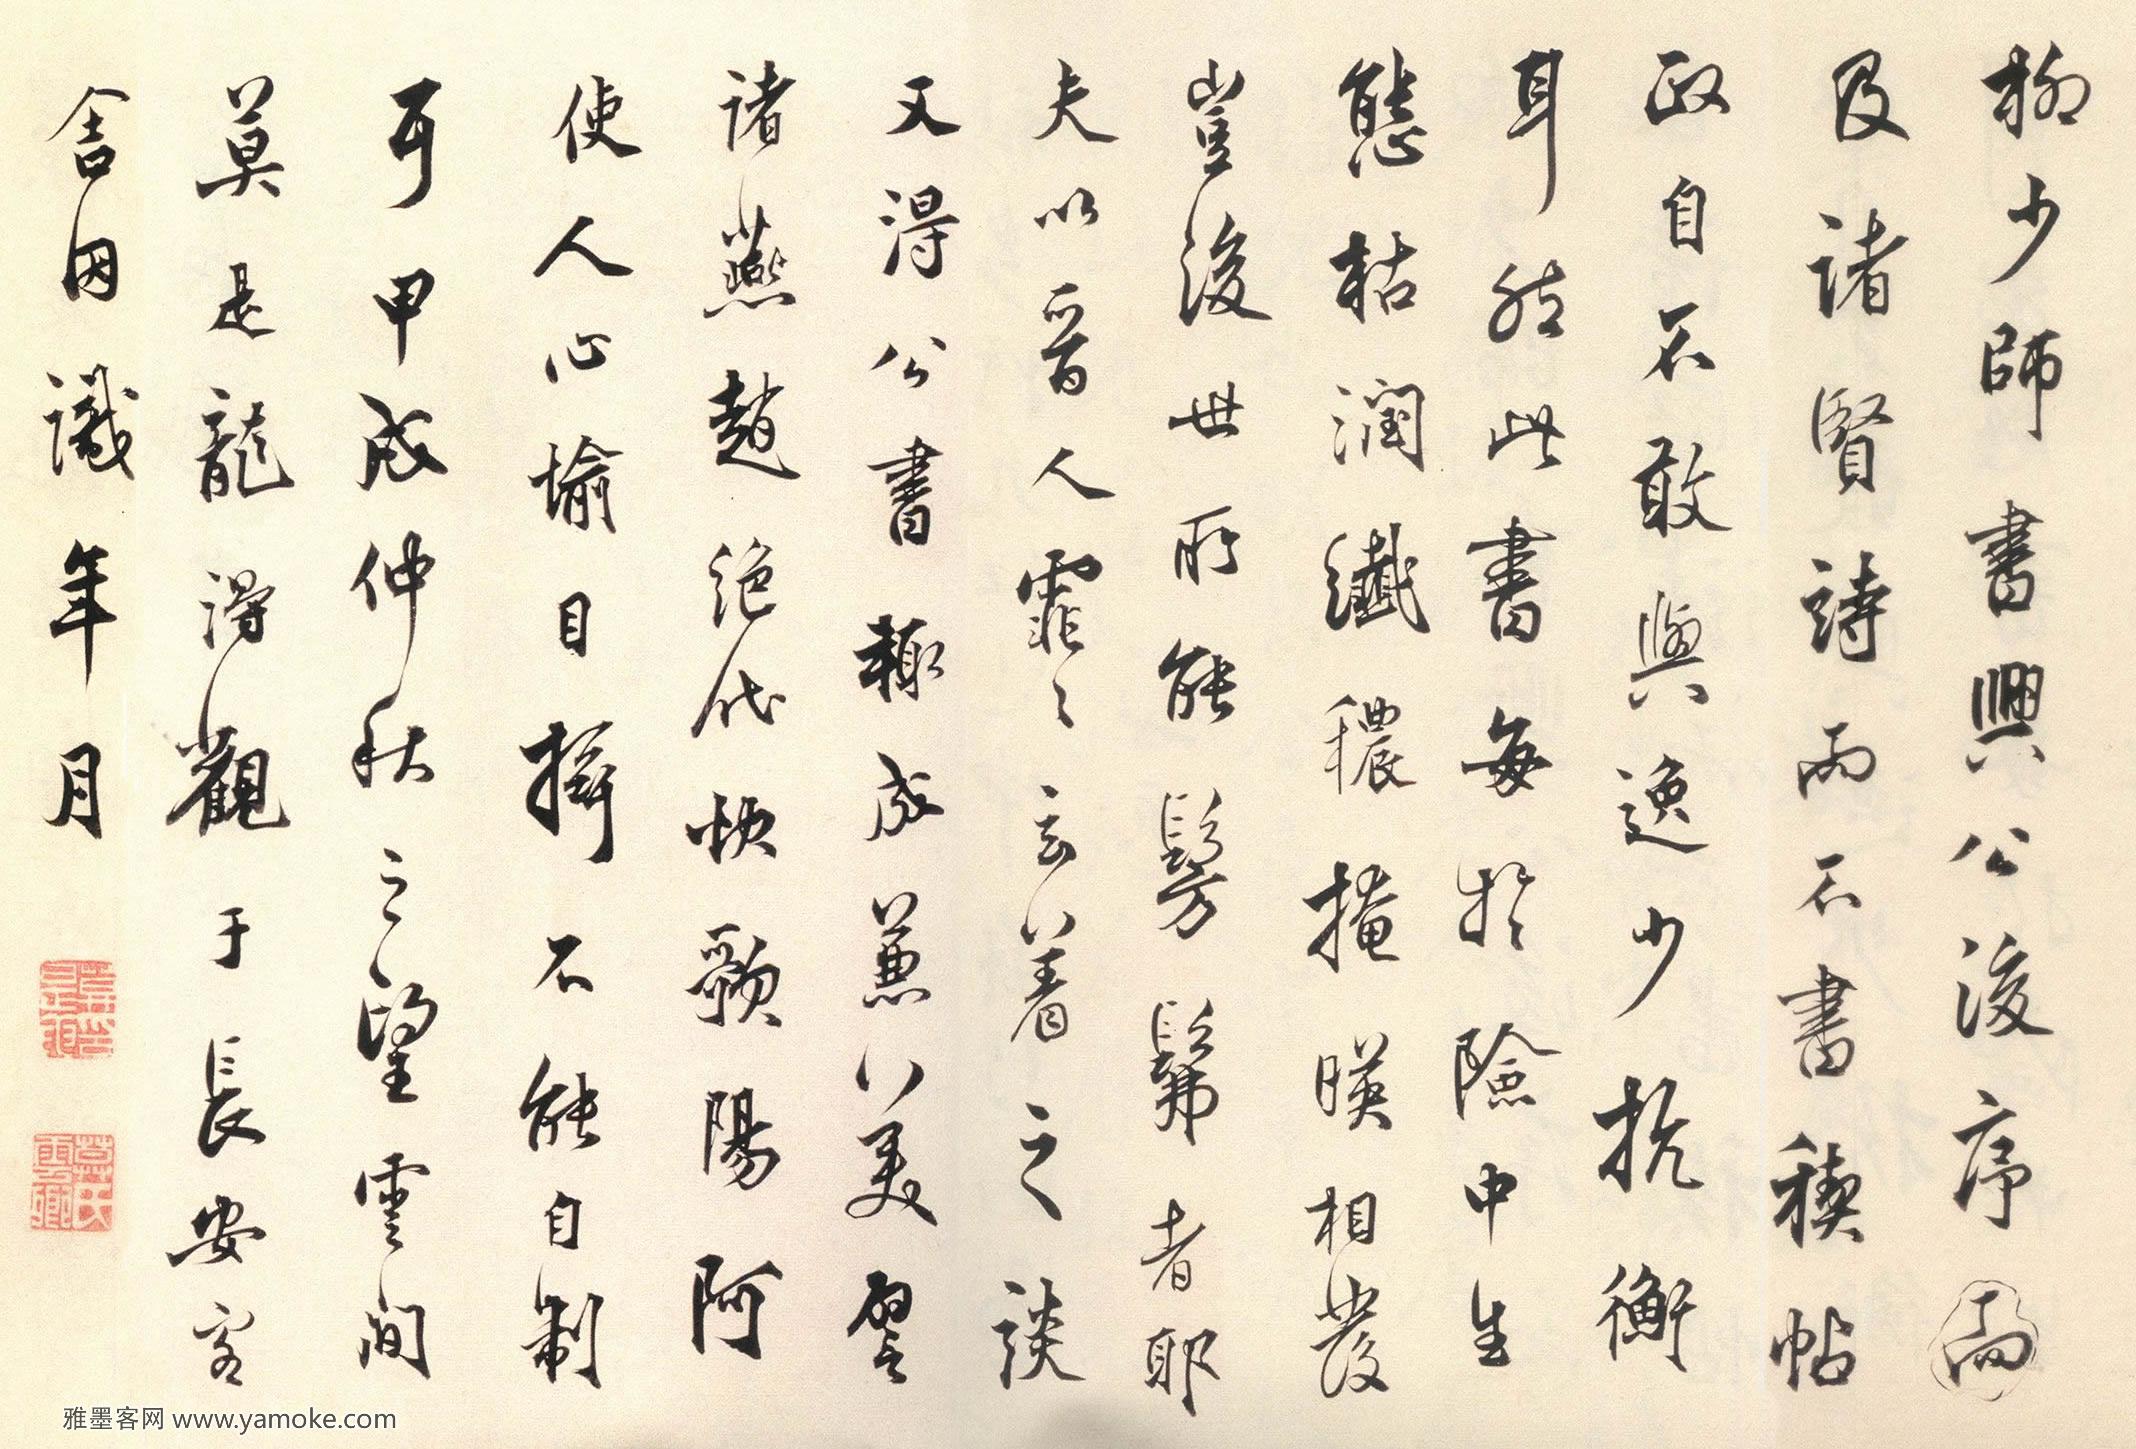 柳少師書興公後序而
及諸賢詩而不書稧帖
政自不敢與逸少抗衡
耳然此書每於險中生
態枯潤纖穠掩暎相發
豈後世所能髣髴者耶
夫以晉人霏〻玄著之談
又得公書輙成兼美譬
諸燕趙絕代快歌陽阿
使人心愉目不能自制
耳甲戌仲秋之望雲間
莫是龍得觀于長安客
舍因識年月
莫氏雲卿
雅墨客网 www.yamoke.com